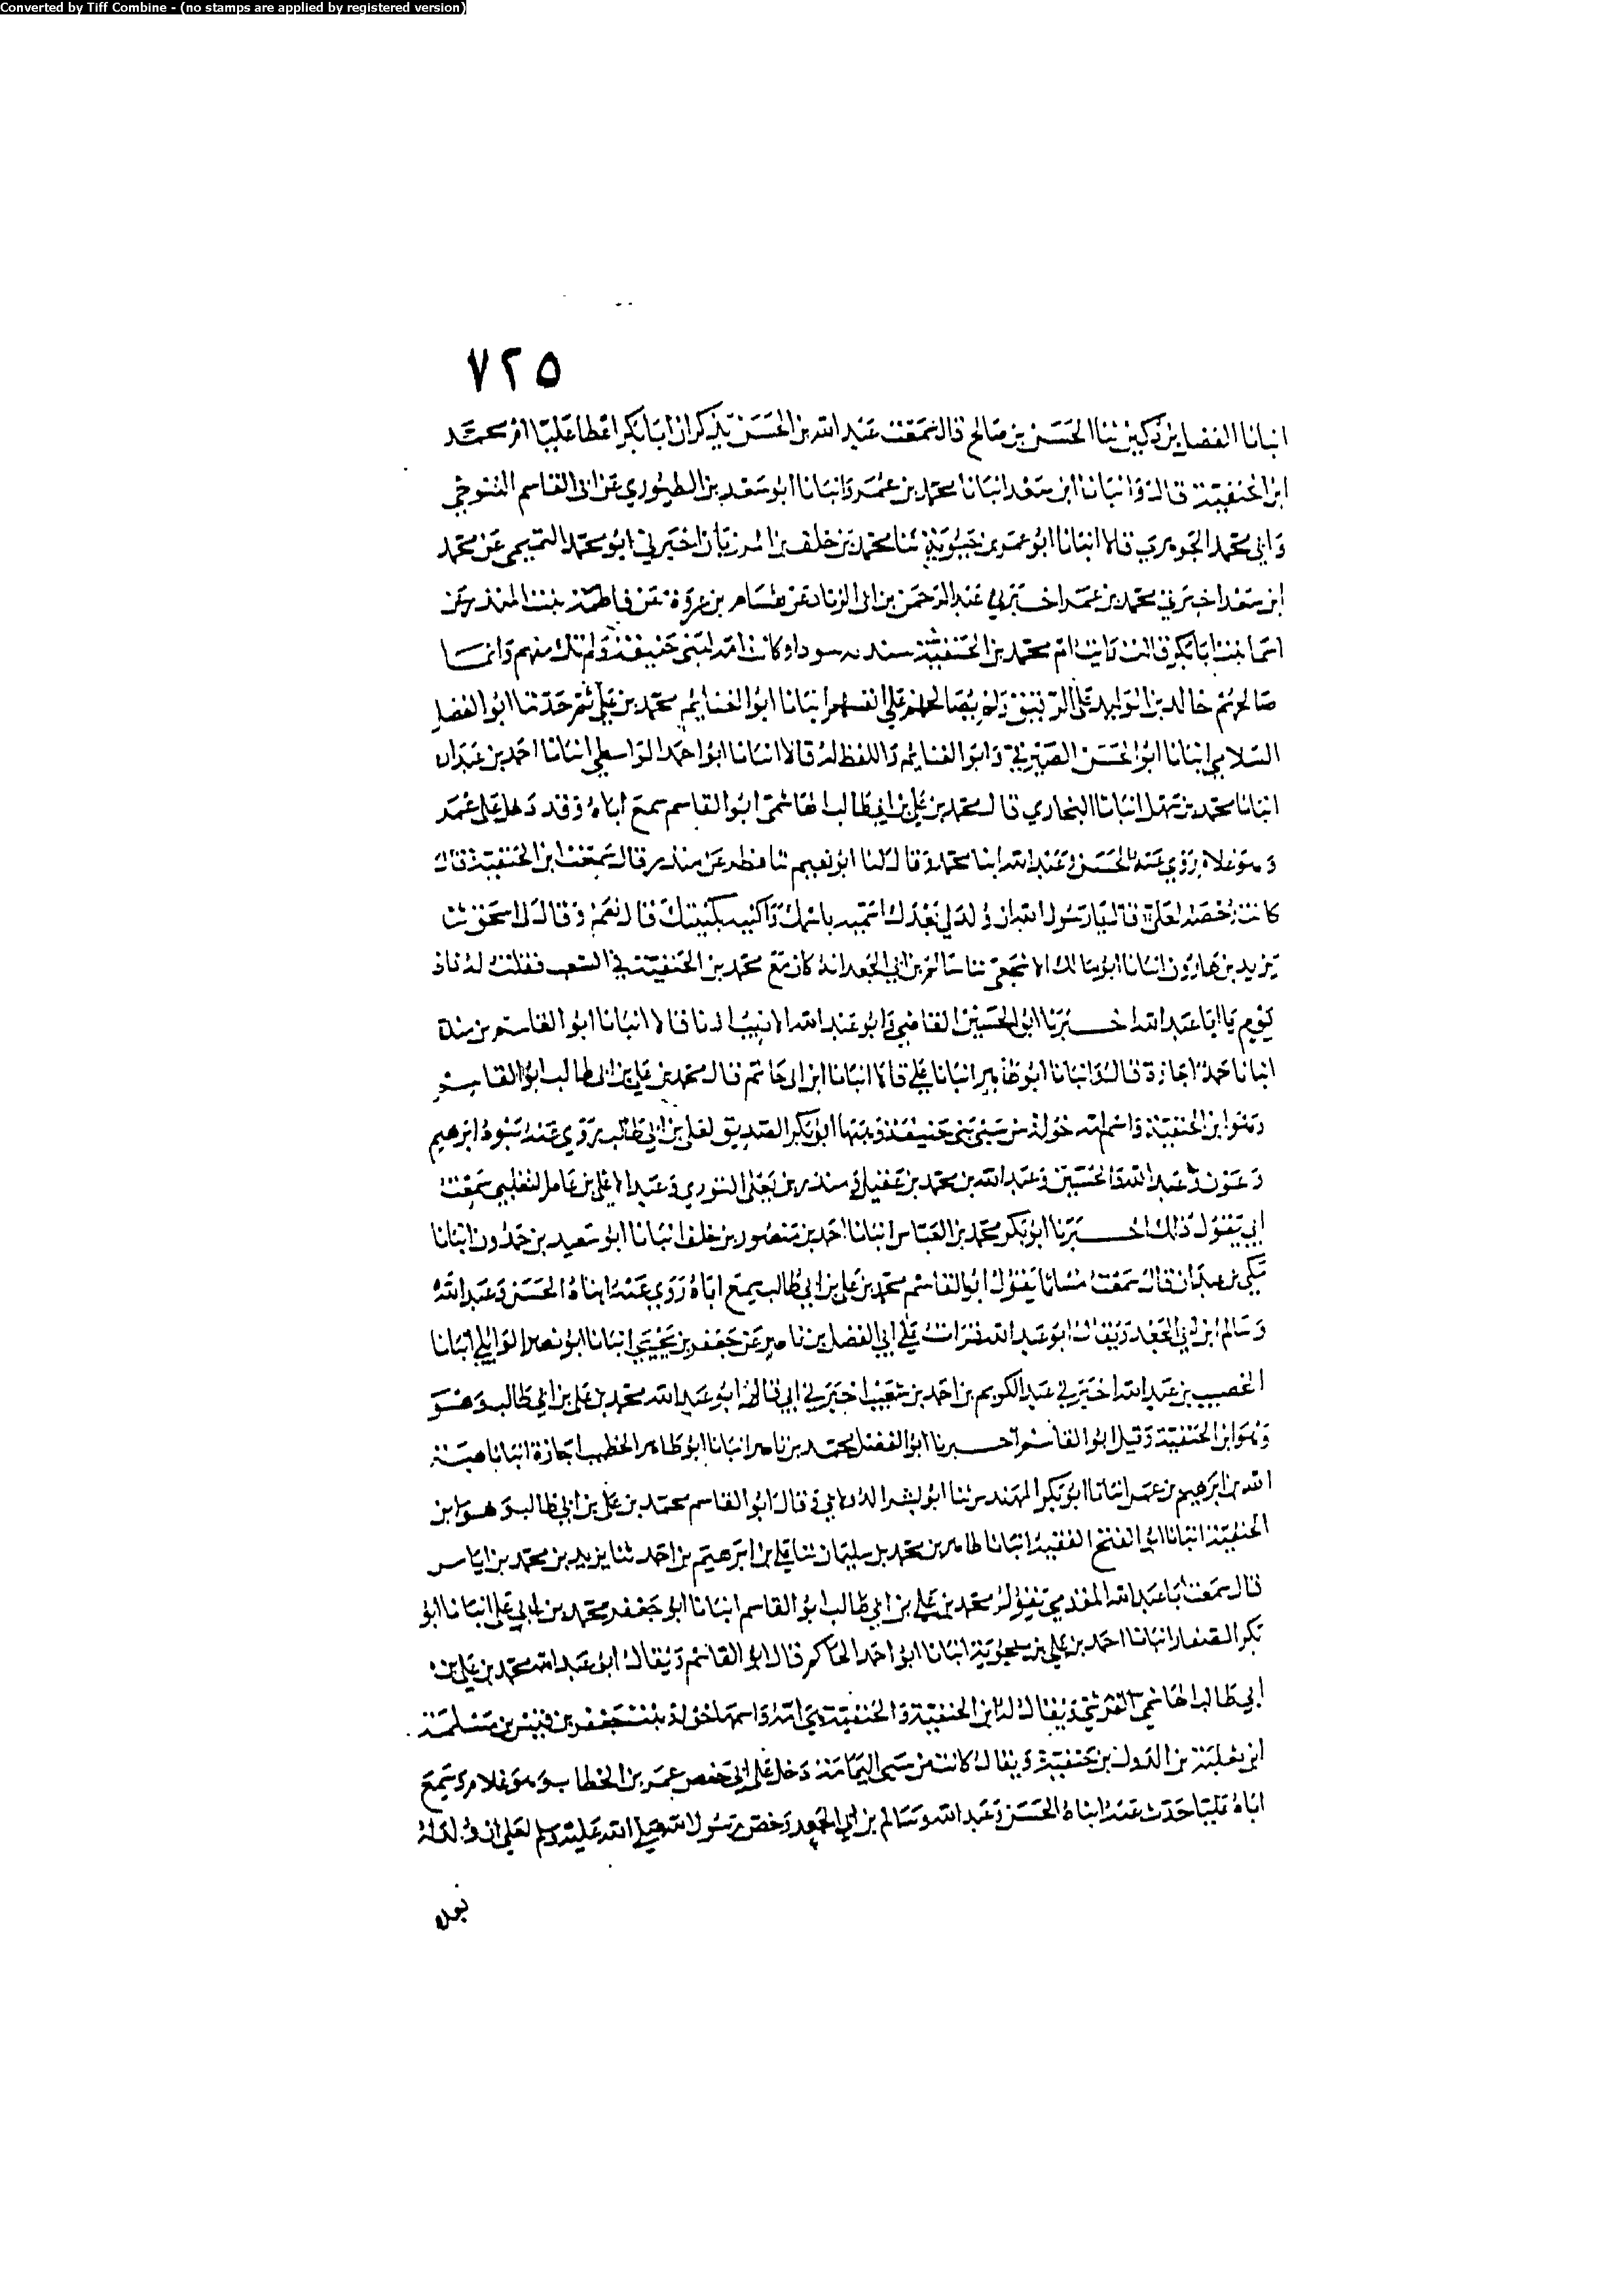 Converted by Tiff Combine - (no stamps are applied by registered version)
٧٢٥
انبانا الفضل بن دكين ثنا الحسن بن صالح قال سمعت عبد الله بن الحسن يذكر ان ابا بكر اعطا عليا ام محمد
ابن الحنفية قال وانبانا ابن سعد انبانا محمد بن عمر وانبانا ابو سعد بن الطيوري عن ابى القاسم التنوخي
وابي محمد الجوهري قالا انبانا ابو عمر بن حيوية ثنا محمد بن خلف بن المرزبان اخبرني ابو محمد التميمي عن محمد
ابن سعد اخبرني محمد بن عمر اخبرني عبد الرحمن بن ابى الزناد عن هشام بن عروة عن فاطمة بنت المنذر عن
اسما بنت ابا بكر قالت رايت ام محمد بن الحنفية سندية سودا وكانت امة لبني حنيفة ولم تك منهم وانما
صالحهم خالد بن الوليد على الرقيق ولم يصالحهم على انفسهم انبانا ابو الغنايم محمد بن علي ثم حدثنا ابو الفضل
السلامي انبانا ابو الحسن الصيرفي وابو الغنايم واللفظ له قالا انبانا ابو احمد الواسطي انبانا احمد بن عبدان
انبانا محمد بن سهل انبانا البخاري قال محمد بن علي بن ابي طالب الهاشمى ابو القاسم سمع اباه وقد دخل على عمر
وهو غلام روي عنه الحسن وعبد الله ابنا محمد وقال لنا ابو نعيم ثنا فطر عن منذر قال سمعت ابن الحنفية قال
كانت رخصة لعلي قال يا رسول الله ان ولد لي بعدك اسميه باسمك واكنيه بكنيتك قال نعم وقال لنا اسحق ثنا
يزيد بن هارون انبانا ابو مالك الاشجعي ثنا سالم بن ابي الجعد انه كان مع محمد بن الحنفية في الشعب فقلت له ذات
يوم يا ابا عبد الله اخبرنا ابو الحسين القاضي وابو عبد الله الاديب اذنا قالا انبانا ابو القاسم بن مندة
انبانا حمد اجازة قال وانبانا ابو طاهر انبانا علي قالا انبانا ابن ابى حاتم قال محمد بن علي بن ابى طالب ابو القاسم
وهو ابن الحنفية واسم امه خولة من سبي بني حنيفة وهبها ابو بكر الصديق لعلي بن ابي طالب روي عنه بنوه ابرهيم
وعون وعبد الله والحسين وعبد الله بن محمد بن عقيل ومنذر بن يعلى الثوري وعبد الاعلى بن عامر الثعلبي سمعت
ابي يقول ذلك اخبرنا ابو بكر محمد بن العباس انبانا احمد بن منصور بن خلف انبانا ابو سعيد بن حمدون انبانا
مكي بن عبدان قال سمعت مسلما يقول ابو القاسم محمد بن علي بن ابي طالب سمع اباه روي عنه ابناه الحسن وعبد الله
وسالم ابن ابي الجعد ويقال ابو عبد الله قرات علي ابي الفضل بن ناصر عن جعفر بن يحيى انبانا ابو نصر الوايلي انبانا
الخصيب بن عبد الله اخبرني عبد الكريم بن احمد بن شعيب اخبرني ابي قال ابو عبد الله محمد بن علي بن ابي طالب وهو
وهو ابن الحنفية وقيل ابو القاسم اخبرنا ابو الفضل محمد بن ناصر انبانا ابو طاهر الخطيب اجازة انبانا هبة
الله بن ابرهيم بن عمر انبانا ابو بكر المهندس ثنا ابو بشر الدولابي قال ابو القاسم محمد بن علي بن ابي طالب وهو ابن
الحنفية انبانا ابو الفتح الفقيه انبانا طاهر بن محمد بن سليمان ثنا علي بن ابرهيم بن احمد ثنا يزيد بن محمد بن اياس
قال سمعت ابا عبد الله المقدمي يقول محمد بن علي بن ابي طالب ابو القاسم انبانا ابو جعفر محمد بن ابي علي انبانا ابو
بكر الصفار انبانا احمد بن علي بن منجوية انبانا ابو احمد الحاكم قال ابو القاسم ويقال ابو عبد الله محمد بن علي بن
ابي طالب الهاشمي القرشي ويقال له ابن الحنفية والحنفية هي امه واسمها خولة بنت جعفر بن قيس بن مسلمة
ابن ثعلبة بن الدول بن حنفية ويقال كانت من سبى اليمامة دخل على ابي حفص عمر بن الخطاب وهو غلام وسمع
اباه عليا حدث عنه ابناه الحسن وعبد الله وسالم بن ابي الجعد رخص رسول الله صلي الله عليه وسلم لعلي ان ولد له
بعده